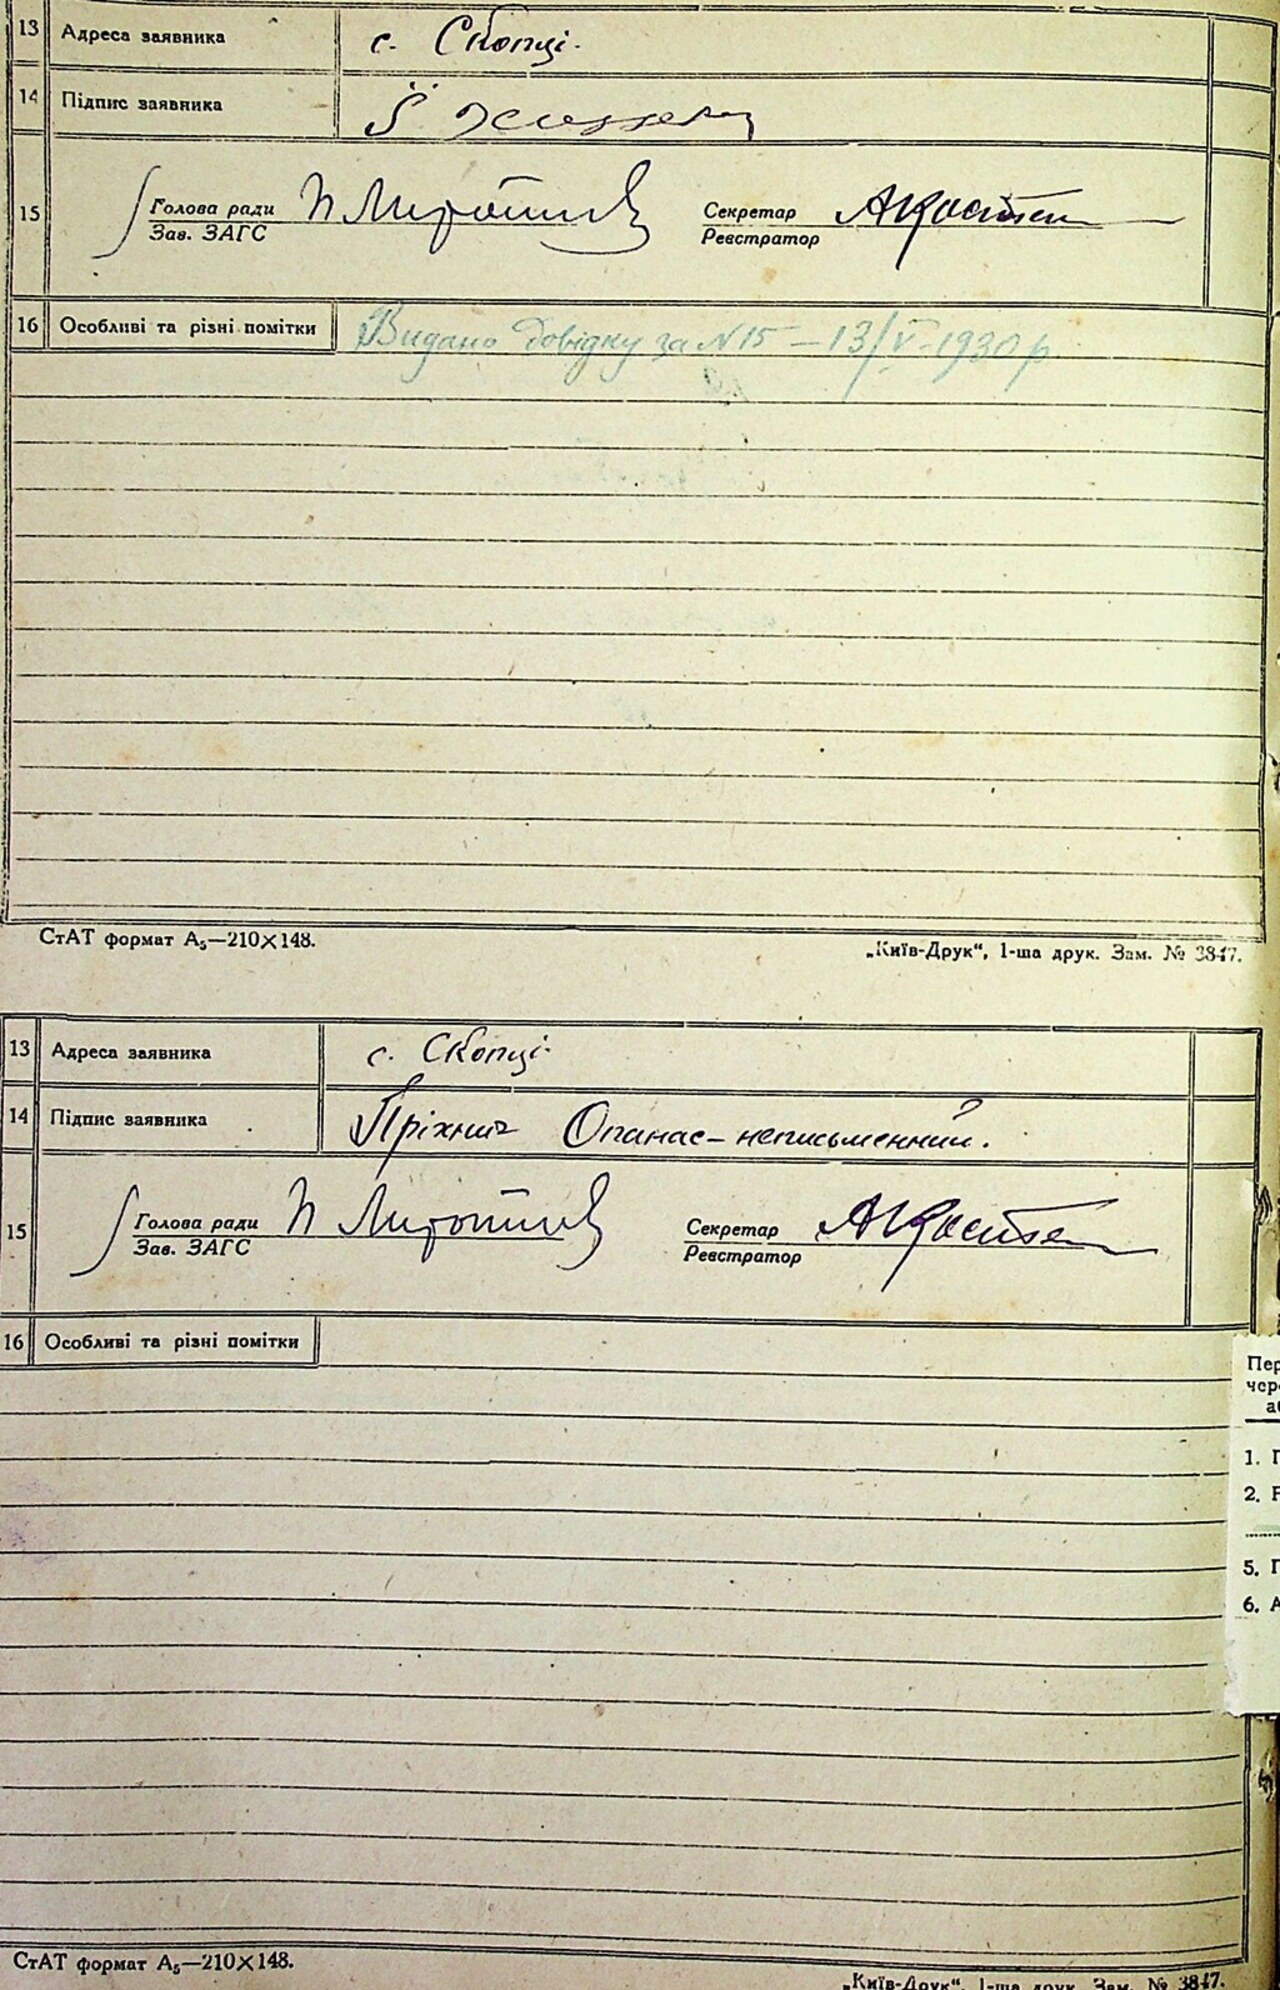 13 Адреса заявника с. Скопці.
14 Підпис заявника
15 Голова ради Секретар
Зав. ЗАГС Реєстратор
16 Особливі та різні помітки Видано довідку за N 15 — 13/V-1930 р.
СтАТ формат А₅—210×148.
„Київ-Друк“, 1-ша друк. Зам. № 3847.
13 Адреса заявника с. Скопці.
14 Підпис заявника Опанас - неписьменний.
15 Голова ради Секретар
Зав. ЗАГС Реєстратор
16 Особливі та різні помітки
Пер
чер
1. Г
2.
5. Г
6. А
СтАТ формат А₅—210×148.
„Київ-Друк“, 1-ша друк. Зам. № 3847.